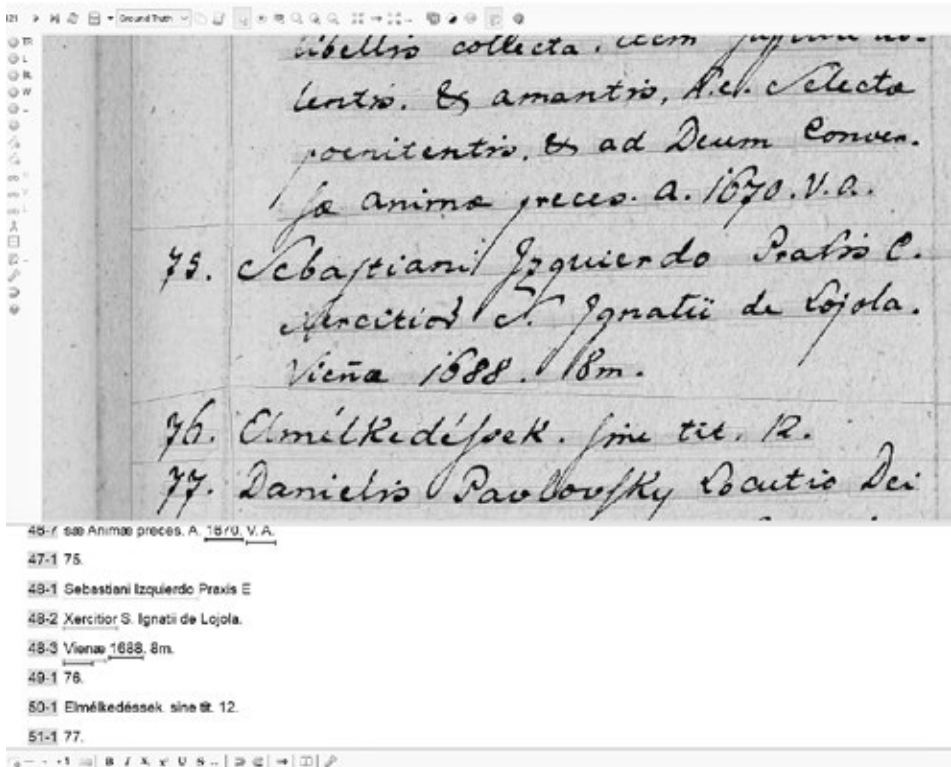 Ground Truth
libellis collecta. item
lentis. & amantis, h.e. Selectæ
pœnitentis, & ad Deum Conver-
sæ animæ preces. A. 1670. V. A.
75. Sebastiani Izquierdo Praxis E
Xercitior S. Ignatii de Lojola.
Vieña 1688. 8m.
76. Elmélkedéssek. sine tit. 12.
77. Danielis Pavlovsky Locutio Dei
46-7 sæ Animæ preces. A. 1670. V. A.
47-1 75.
48-1 Sebastiani Izquierdo Praxis E
48-2 Xercitior S. Ignatii de Lojola.
48-3 Vienæ 1688. 8m.
49-1 76.
50-1 Elmélkedéssek. sine tit. 12.
51-1 77.